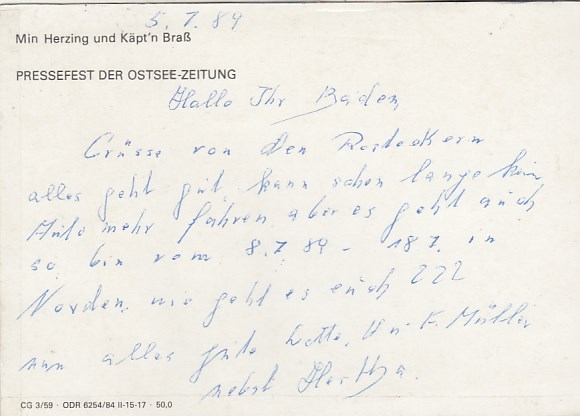 5.7.89
Min Herzing und Käpt'n Braß
PRESSEFEST DER OSTSEE-ZEITUNG
Hallo Ihr Beiden,
Grüsse von den Rostockern
alles geht gut, kann schon lange kein
Auto mehr fahren aber es geht auch
so bin vom 8.7.89 - 18 7. in
Norden, wie geht es euch ???
nun alles gute Lotte, U K. Müller
nebst Hertha.
CG 3/59 · ODR 6254/84 II-15-17 · 50,0